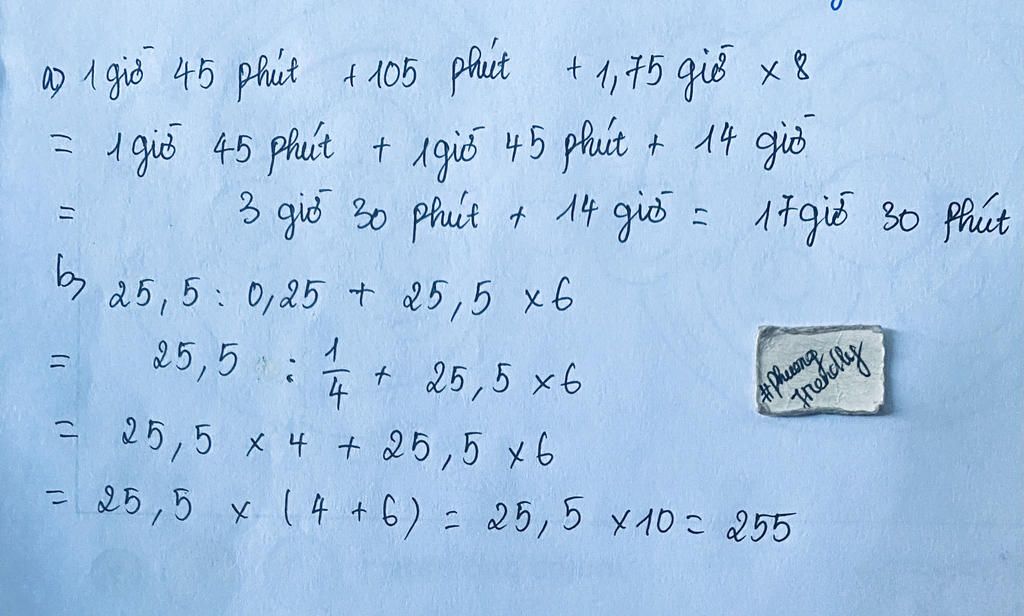 a) 1 giờ 45 phút + 105 phút + 1,75 giờ × 8
= 1 giờ 45 phút + 1 giờ 45 phút + 14 giờ
= 3 giờ 30 phút + 14 giờ = 17 giờ 30 phút
b) 25,5 : 0,25 + 25,5 × 6
= 25,5 : 1/4 + 25,5 × 6
= 25,5 × 4 + 25,5 × 6
= 25,5 × (4 + 6) = 25,5 × 10 = 255
#Phuong